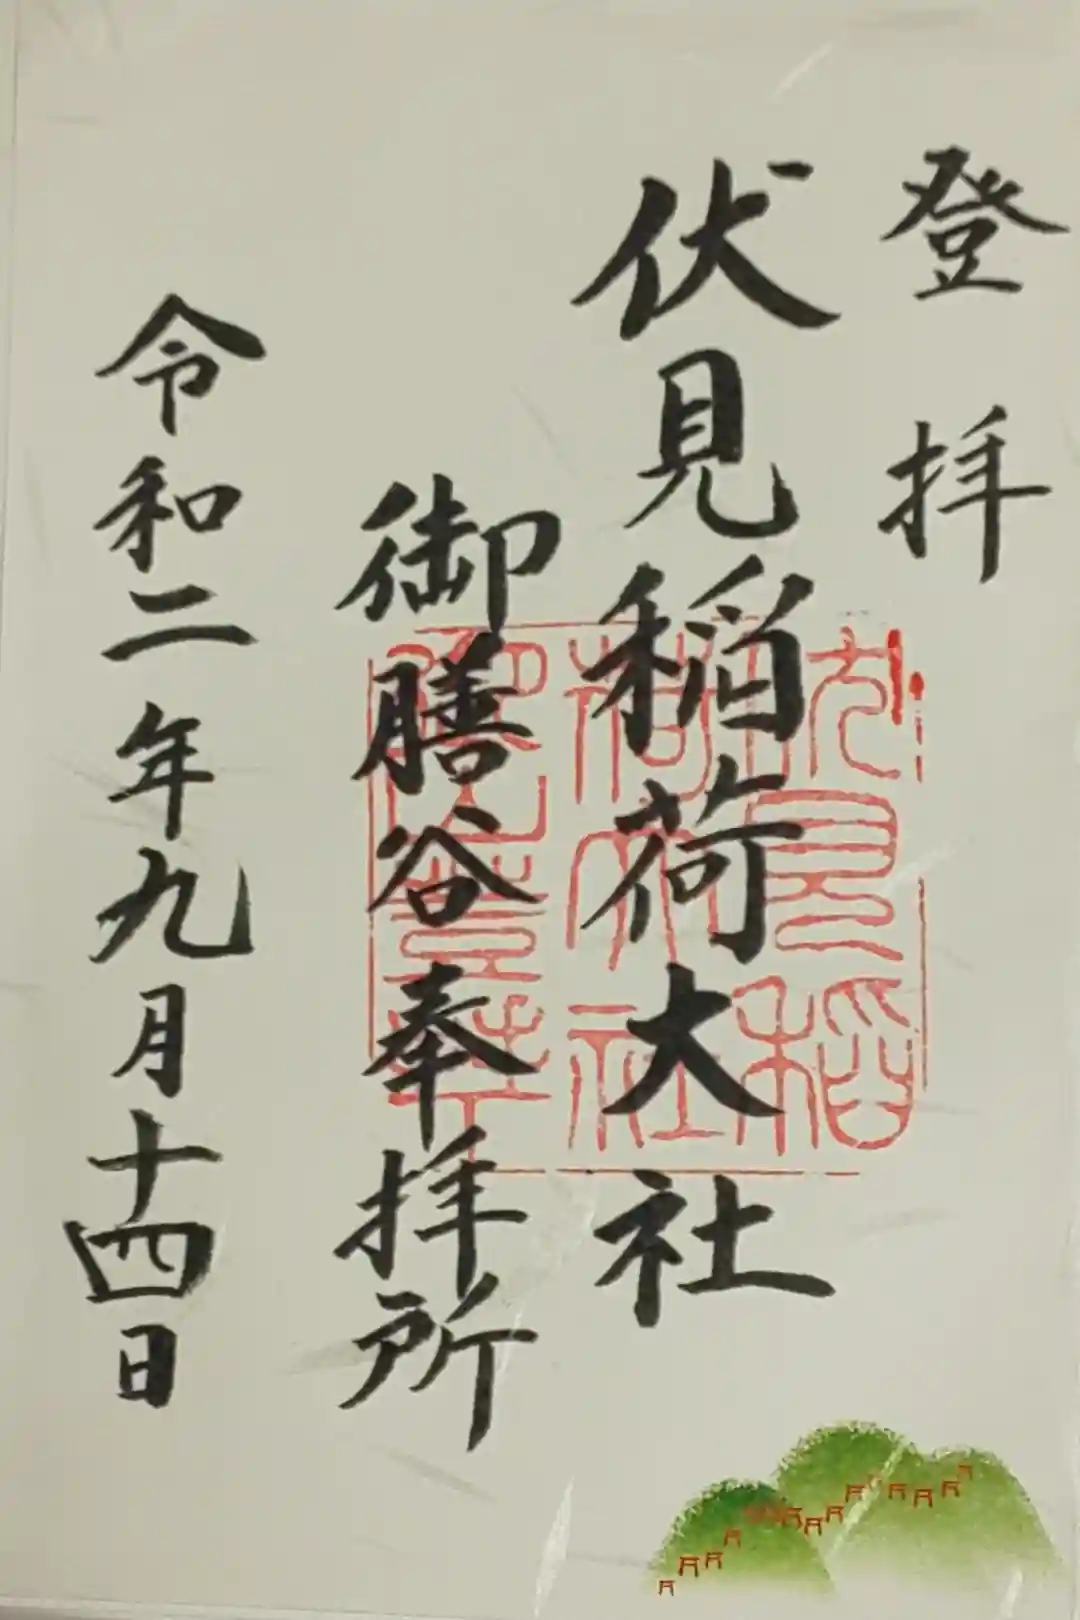 登拝
伏見稲荷大社
御膳谷奉拝所
令和二年九月十四日